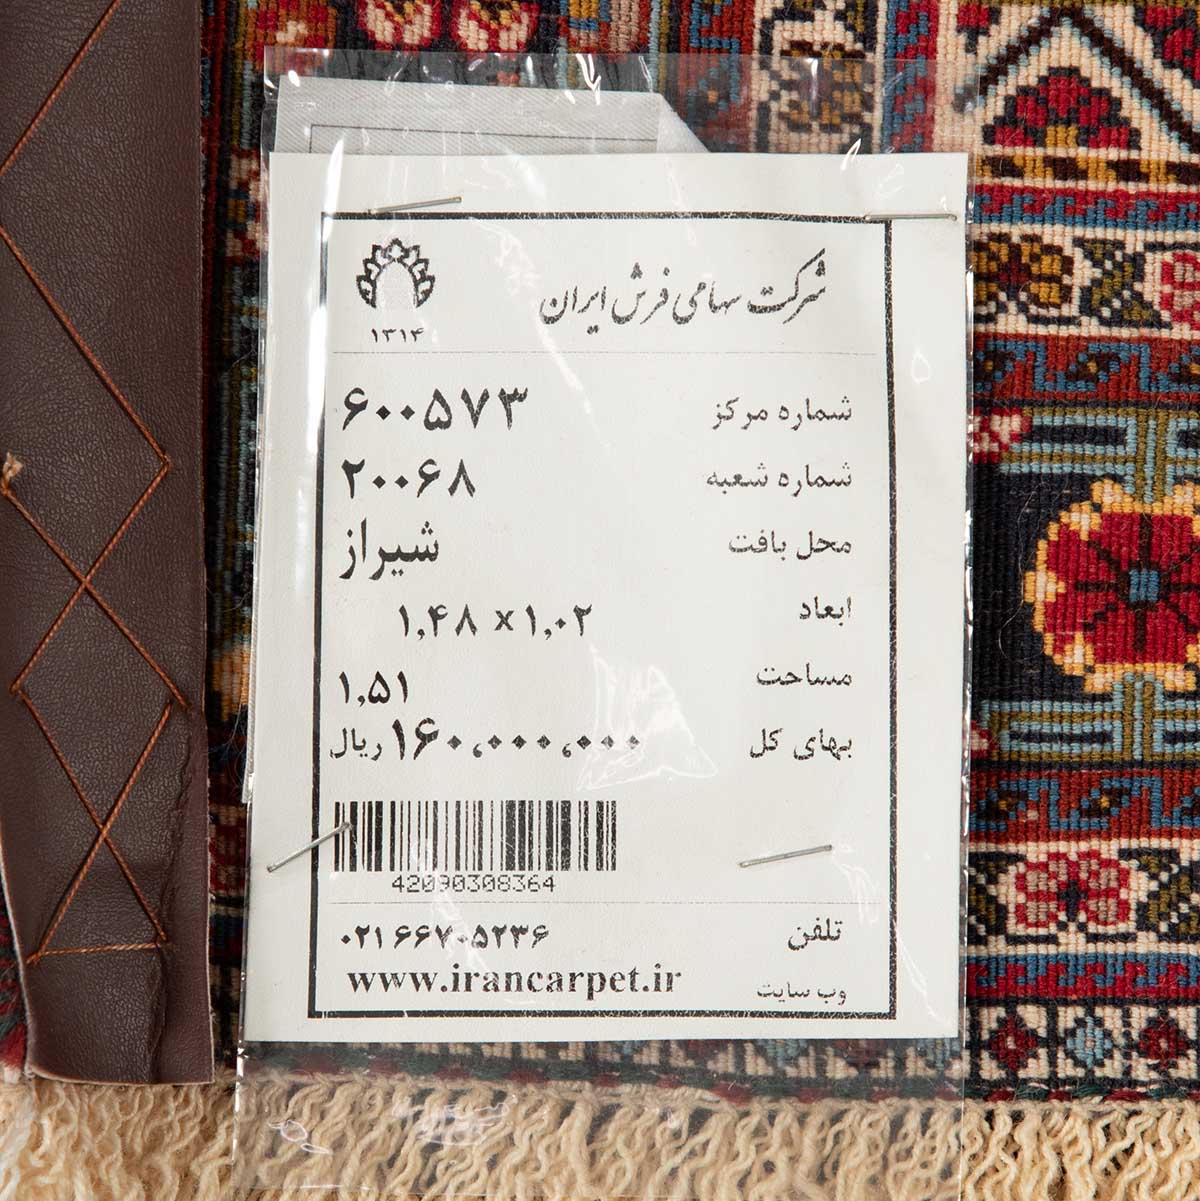 شرکت سهامی فرش ایران
۱۳۱۴
شماره مرکز ۶۰۰۵۷۳
شماره شعبه ۲۰۰۶۸
محل بافت شیراز
ابعاد ۱,۴۸ x ۱,۰۲
مساحت ۱,۵۱
بهای کل ۱۶۰,۰۰۰,۰۰۰ ریال
42090308364
تلفن ۰۲۱۶۶۷۰۵۲۳۶
وب سایت www.irancarpet.ir